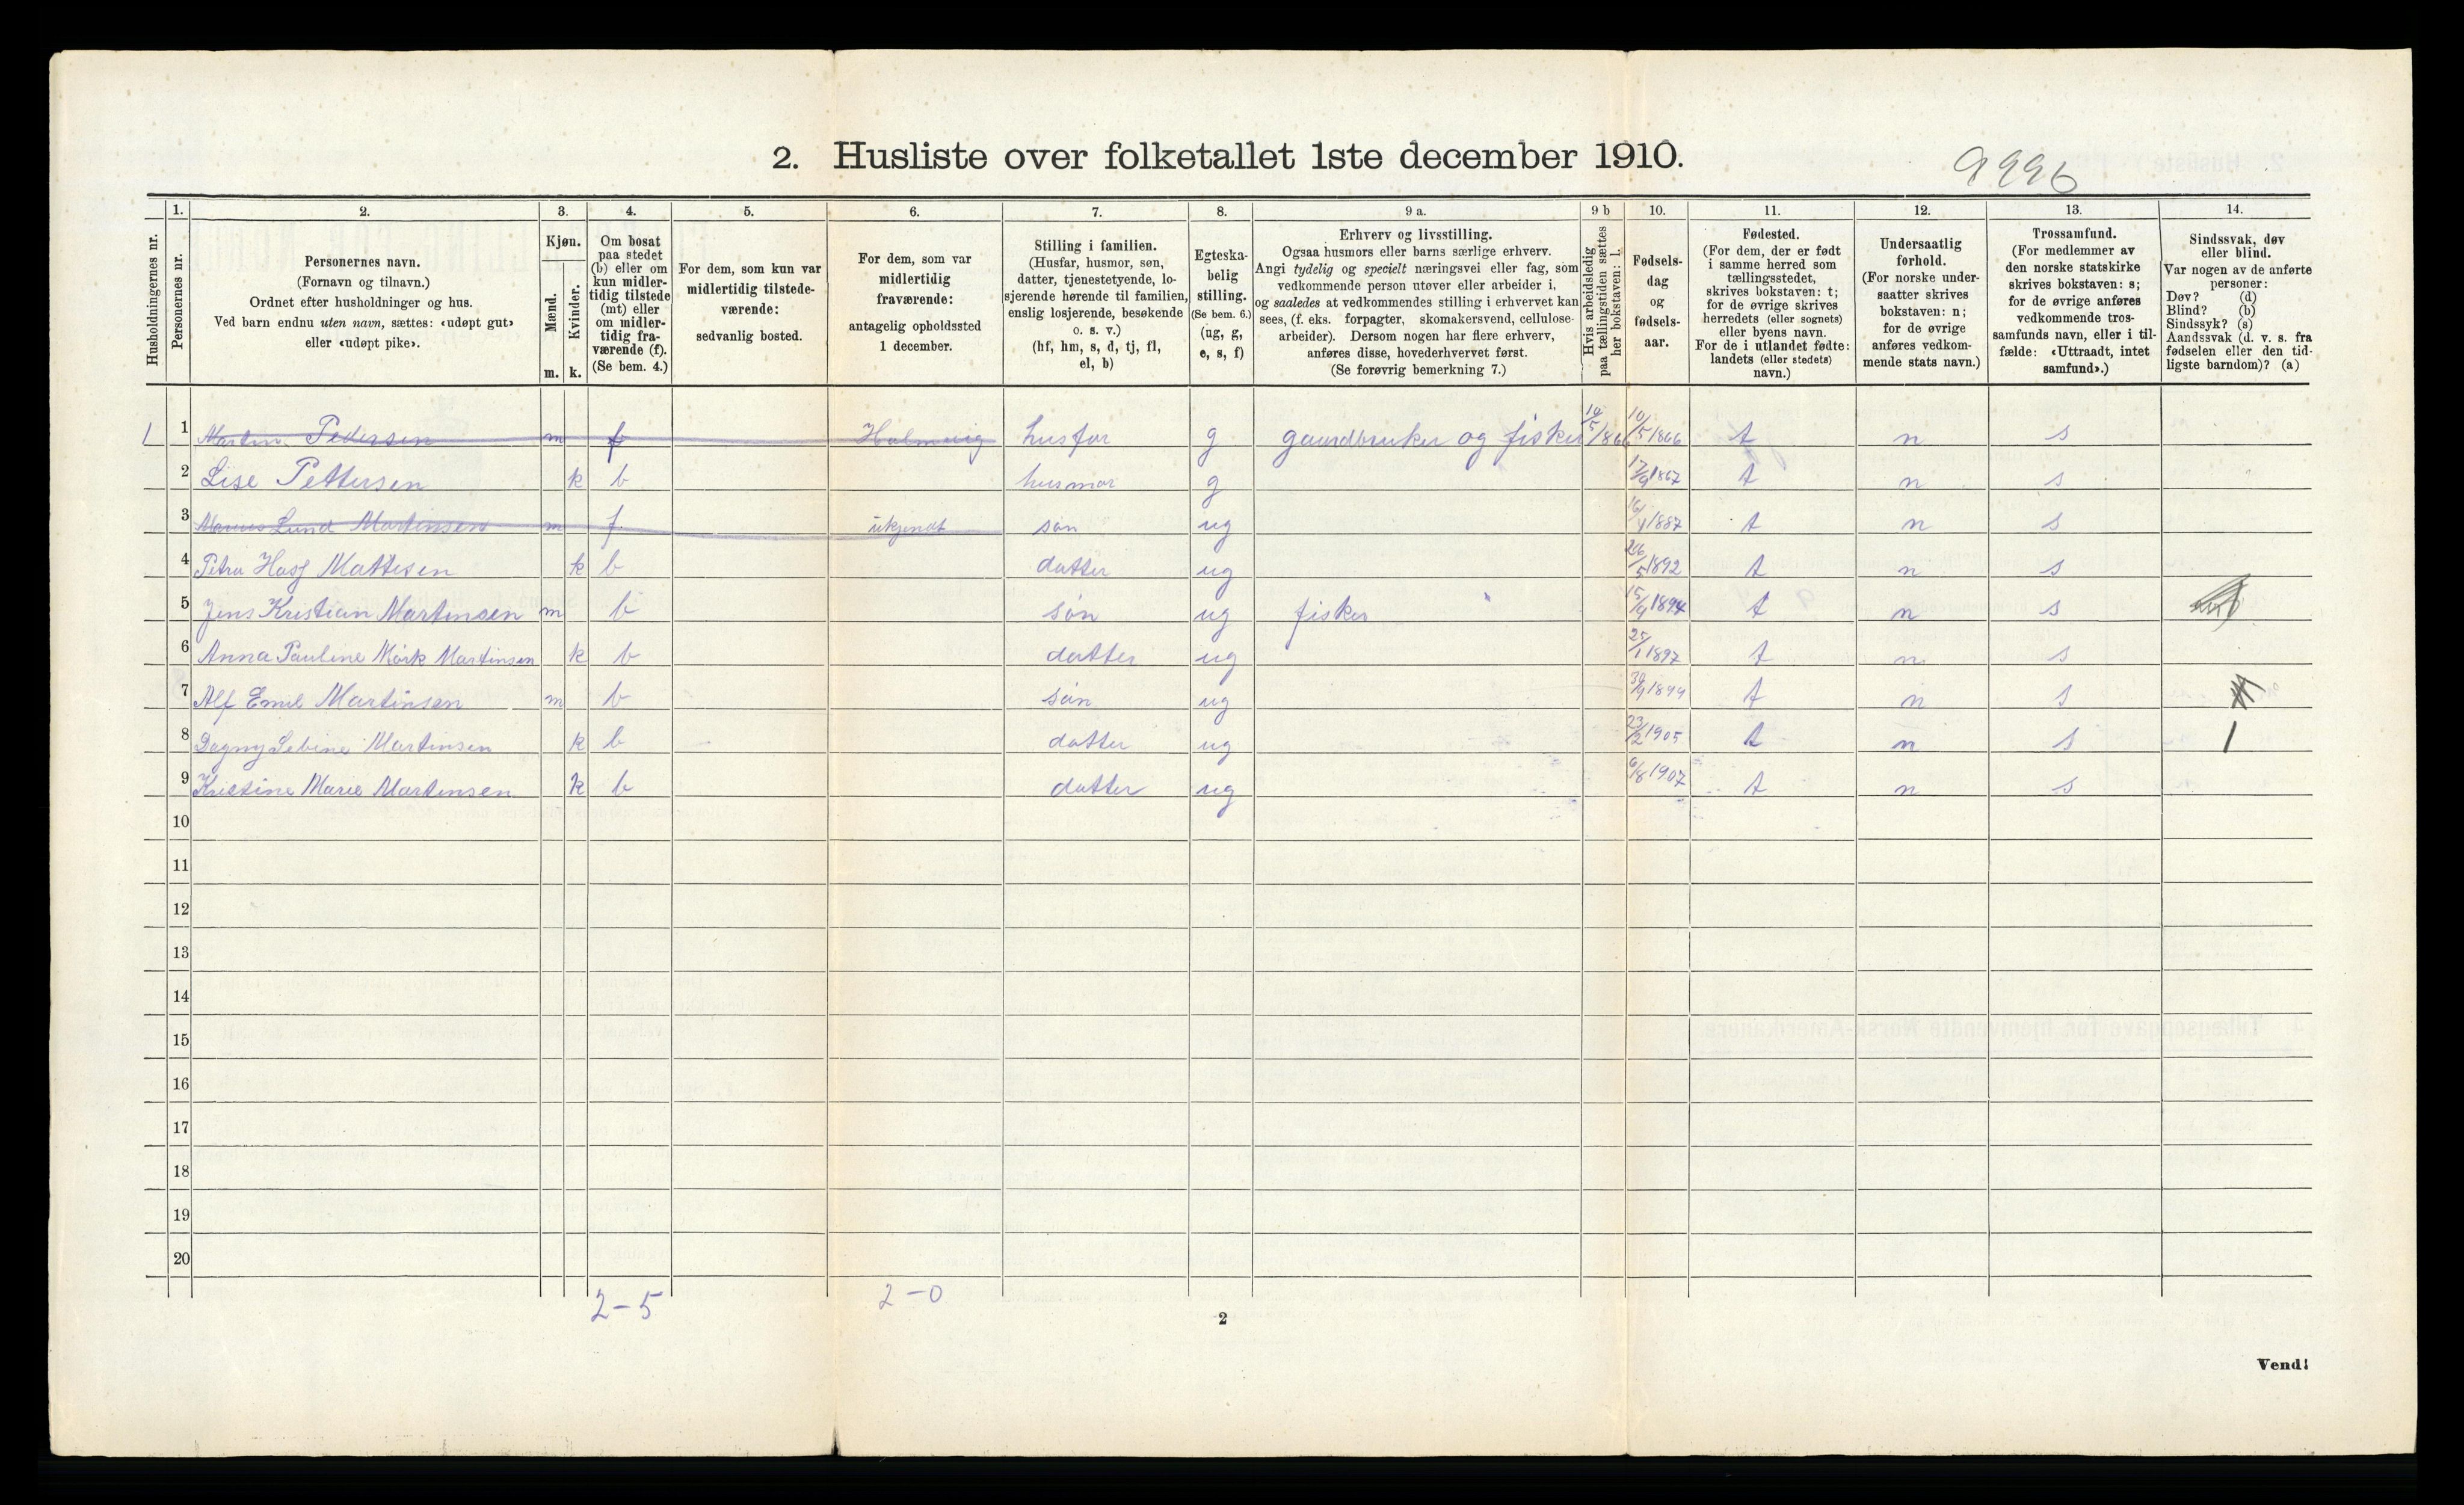 2. Husliste over folketallet 1ste december 1910.
9996
Husholdningernes nr.
1.
Personernes nr.
2.
Personernes navn.
(Fornavn og tilnavn.)
Ordnet efter husholdninger og hus.
Ved barn endnu uten navn, sættes: «udøpt gut»
eller «udøpt pike».
3.
Kjøn.
Mænd.
Kvinder.
m. k.
4.
Om bosat
paa stedet
(b) eller om
kun midler-
tidig tilstede
(mt) eller
om midler-
tidig fra-
værende (f).
(Se bem. 4.)
5.
For dem, som kun var
midlertidig tilstede-
værende:
sedvanlig bosted.
6.
For dem, som var
midlertidig
fraværende:
antagelig opholdssted
1 december.
7.
Stilling i familien.
(Husfar, husmor, søn,
datter, tjenestetyende, lo-
sjerende hørende til familien,
enslig losjerende, besøkende
o. s. v.)
(hf, hm, s, d, tj, fl,
el, b)
8.
Egteska-
belig
stilling.
(Se bem. 6.)
(ug, g,
e, s, f)
9 a.
Erhverv og livsstilling.
Ogsaa husmors eller barns særlige erhverv.
Angi tydelig og specielt næringsvei eller fag, som
vedkommende person utøver eller arbeider i,
og saaledes at vedkommendes stilling i erhvervet kan
sees, (f. eks. forpagter, skomakersvend, cellulose-
arbeider). Dersom nogen har flere erhverv,
anføres disse, hovederhvervet først.
(Se forøvrig bemerkning 7.)
9 b
Hvis arbeidsledig
paa tællingstiden sættes
her bokstaven: l.
10.
Fødsels-
dag
og
fødsels-
aar.
11.
Fødested.
(For dem, der er født
i samme herred som
tællingsstedet,
skrives bokstaven: t;
for de øvrige skrives
herredets (eller sognets)
eller byens navn.
For de i utlandet fødte:
landets (eller stedets)
navn.)
12.
Undersaatlig
forhold.
(For norske under-
saatter skrives
bokstaven: n;
for de øvrige
anføres vedkom-
mende stats navn.)
13.
Trossamfund.
(For medlemmer av
den norske statskirke
skrives bokstaven: s;
for de øvrige anføres
vedkommende tros-
samfunds navn, eller i til-
fælde: «Uttraadt, intet
samfund».)
14.
Sindssvak, døv
eller blind.
Var nogen av de anførte
personer:
Døv? (d)
Blind? (b)
Sindssyk? (s)
Aandssvak (d. v. s. fra
fødselen eller den tid-
ligste barndom)? (a)
1 1 Martin Pedersen m f husfar g gaardbruker og fisker 10/5 1866 10/5 1866 t n s
2 Lise Pettersen k b husmor g 17/9 1867 t n s
3 Lund Martinsen m f ukjendt søn ug 1887 t n s
4 Petra Mattisen k b datter ug 26/5 1892 t n s
5 Jens Kristian Martinsen m b søn ug fisker 15/9 1894 t n s
6 Anna Pauline Mörk Martinsen k b datter ug 25/1 1897 t n s
7 Alf Emil Martinsen m b søn ug 30/9 1899 t n s
8 Dagny Sebine Martinsen k b datter ug 23/2 1905 t n s
9 Kristine Marie Martinsen k b datter ug 6/8 1907 t n s
10
11
12
13
14
15
16
17
18
19
20
2-5 2-0
2
Vend!